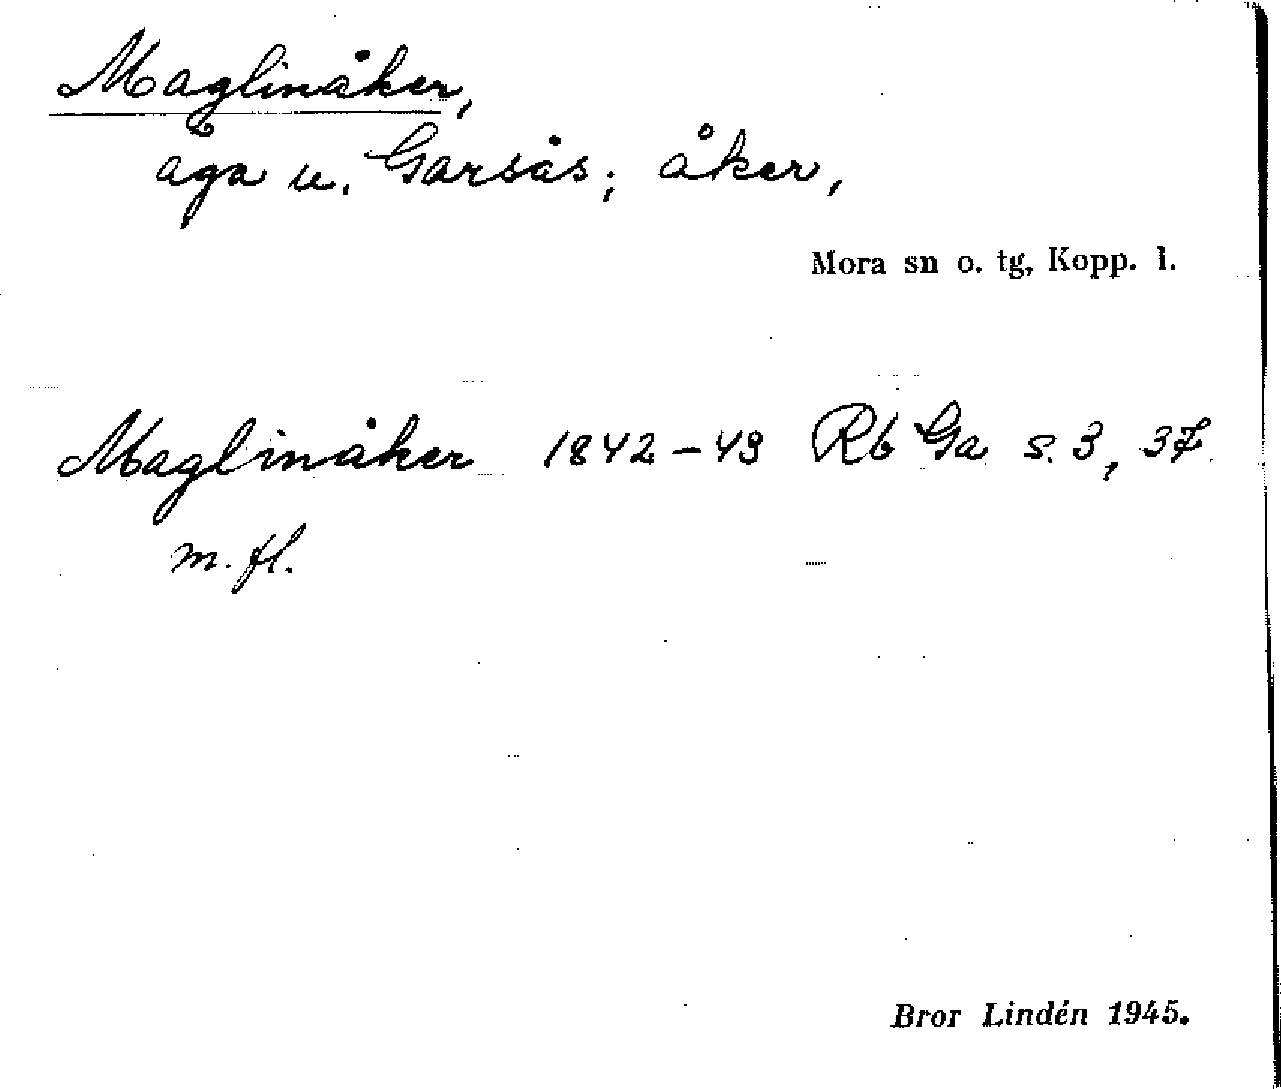 Maglinåker,
äga u. Garsås; åker,
Mora sn o. tg, Kopp. l.
Maglinåker 1842-49 Rb Ga s. 3, 37
m. fl.
Bror Lindén 1945.